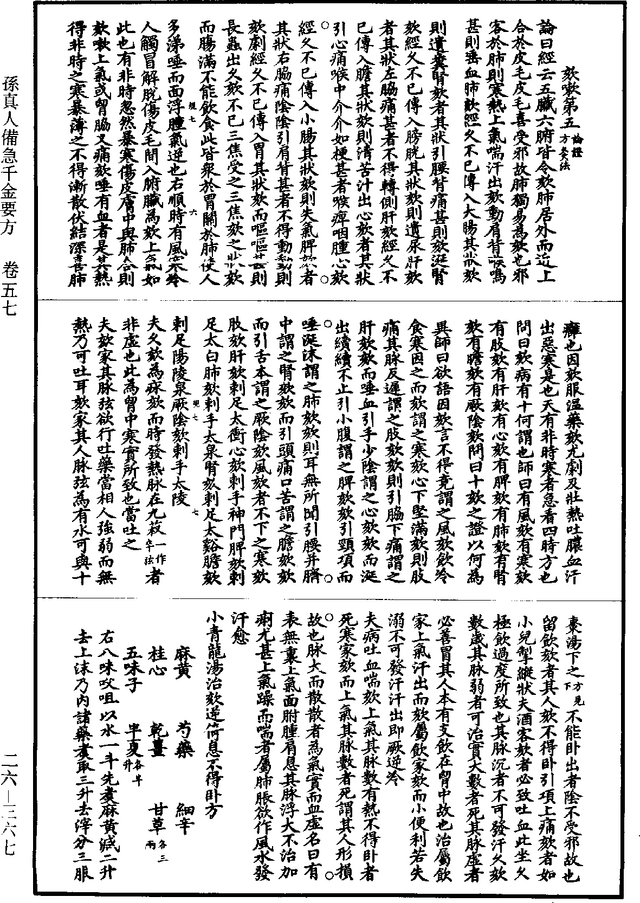 欬嗽第五 論證方灸法
論曰經云五臟六腑皆令欬肺居外而近上
合於皮毛皮毛喜受邪故肺獨易為欬也邪
客於肺則寒熱上氣喘汗出欬動肩背喉鳴
甚則唾血肺欬經久不已傳入大腸其狀欬
則遺糞腎欬者其狀引腰背痛甚則欬涎腎
欬經久不已傳入膀胱其狀欬則遺尿肝欬
者其狀左脇痛甚者不得轉側肝欬經久不
已傳入膽其狀欬則清苦汁出心欬者其狀
引心痛喉中介介如梗甚者喉痺咽腫心欬
經久不已傳入小腸其狀欬則失氣脾欬者
其狀右脇痛陰陰引肩背甚者不得動動則
欬劇經久不已傳入胃其狀欬而嘔嘔甚則
長蟲出久欬不已三焦受之三焦欬之狀欬
而腸滿不能飲食此皆聚於胃關於肺使人
多涕唾而面浮腫氣逆也右順時有風寒冷
人觸冒解脫傷皮毛間入腑臟為欬上氣如
此也有非時忽然暴寒傷皮膚中與肺合則
欬嗽上氣或胷脇叉痛欬唾有血者是其熱
得非時之寒暴薄之不得漸散伏結深喜肺
癰也因欬服溫藥欬尤劇及壯熱吐膿血汗
出惡寒臭也天有非時寒者急看四時方也
問曰欬病有十何謂也師曰有風欬有寒欬
有肢欬有肝欬有心欬有脾欬有肺欬有腎
欬有膽欬有厥陰欬問曰十欬之證以何為
異師曰欲語因欬言不得竟謂之風欬飲冷
食寒因之而欬謂之寒欬心下堅滿欬則肢
痛其脉反遲謂之肢欬欬則引脇下痛謂之
肝欬欬而唾血引手少陰謂之心欬欬而涎
出續續不止引小腹謂之脾欬欬引頸項而
唾涎沫謂之肺欬欬則耳無所聞引腰并臍
中謂之腎欬欬而引頭痛口苦謂之膽欬欬
而引舌本謂之厥陰欬風欬者不下之寒欬
肢欬肝欬刺足太衝心欬刺手神門脾欬刺
足太白肺欬刺手太泉腎欬刺足太谿膽欬
刺足陽陵泉厥陰欬刺手太陵
夫久欬為疢欬而時發熱脉在九菽一作卒弦者
非虛也此為胷中寒實所致也當吐之
夫欬家其脉弦欲行吐藥當相人強弱而無
熱乃可吐耳欬家其人脉弦為有水可與十
棗湯下之方見下不能卧出者陰不受邪故也
留飲欬者其人欬不得卧引項上痛欬者如
小兒掣縱狀夫酒客欬者必致吐血此坐久
極飲過度所致也其脉沉者不可發汗久欬
數歲其脉弱者可治實大數者死其脉虛者
必善冒其人本有支飲在胷中故也治屬飲
家上氣汗出而欬屬飲家欬而小便利若失
溺不可發汗汗出即厥逆冷
夫病吐血喘欬上氣其脉數有熱不得卧者
死寒家欬而上氣其脉數者死謂其人形損
故也脉大而散散者為氣實而血虛名曰有
表無裏上氣面胕腫肩息其脉浮大不治加
痢尤甚上氣躁而喘者屬肺脹欲作風水發
汗愈
小青龍湯治欬逆倚息不得卧方
麻黃　芍藥　細辛
桂心　乾薑　甘草各三兩
五味子　半夏各半升
右八味㕮咀以水一斗先煮麻黃減二升
去上沫乃內諸藥煮取三升去滓分三服
孫真人備急千金要方　卷五七
二六—三六七